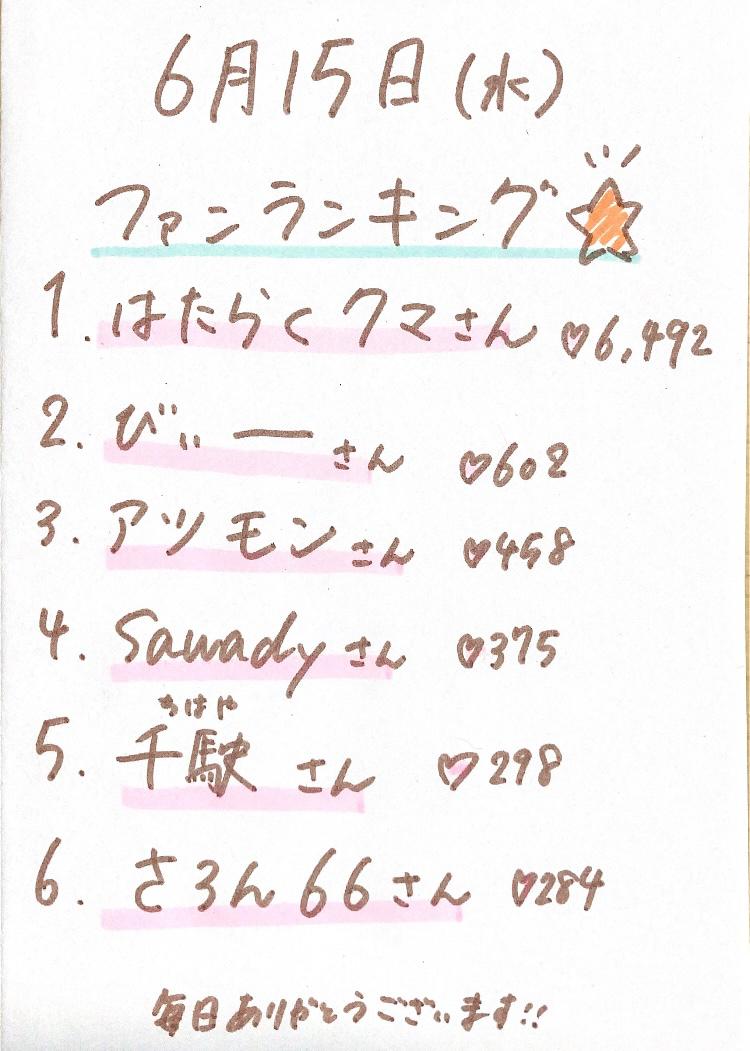 6月15日(水)
ファンランキング
1. はたらくクマさん ♡6,492
2. びぃーさん ♡602
3. アツモンさん ♡458
4. Sawadyさん ♡375
ちはや
5. 千駛さん ♡298
6. さろん66さん ♡284
毎日ありがとうございます!!